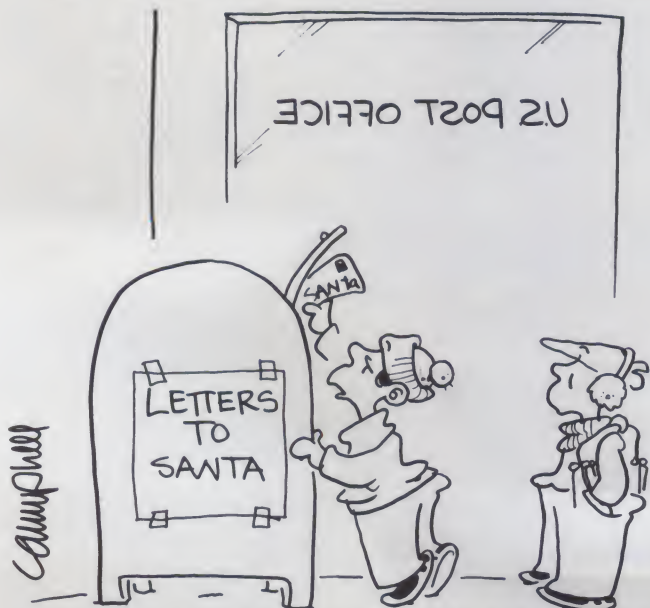 U.S. POST OFFICE
SANTA
LETTERS
TO
SANTA
Campbell